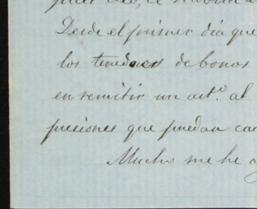 Desde el primer dia que
los tenedores de bonos
en remitir un art.º al
presiones que puedan
Mucho me he